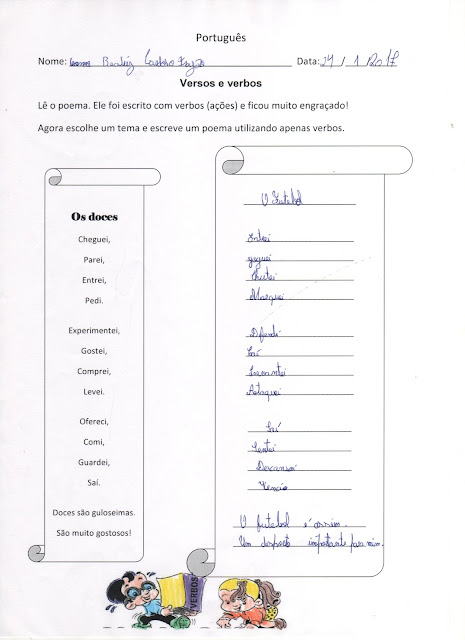 Português
Nome: Beatriz Castro Data: 24 / 1 / 2017
Versos e verbos
Lê o poema. Ele foi escrito com verbos (ações) e ficou muito engraçado!
Agora escolhe um tema e escreve um poema utilizando apenas verbos.
Os doces
Cheguei,
Parei,
Entrei,
Pedi.
Experimentei,
Gostei,
Comprei,
Levei.
Ofereci,
Comi,
Guardei,
Saí.
Doces são guloseimas.
São muito gostosos!
O futebol
Entrei
joguei
Chutei
Marquei
Difendi
Caí
Levantei
Ataquei
Saí
Sentei
Descansei
O futebol é assim.
Um desporto importante para mim.
VERBOS